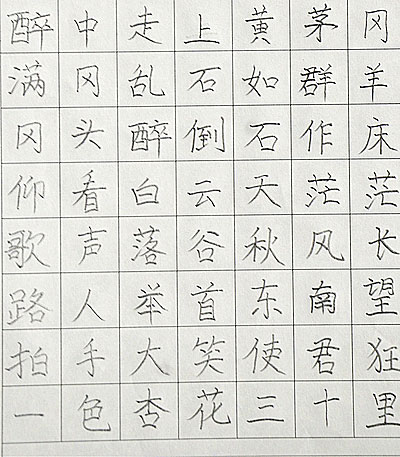 醉中走上黄茅冈
满冈乱石如群羊
冈头醉倒石作床
仰看白云天茫茫
歌声落谷秋风长
路人举首东南望
拍手大笑使君狂
一色杏花三十里